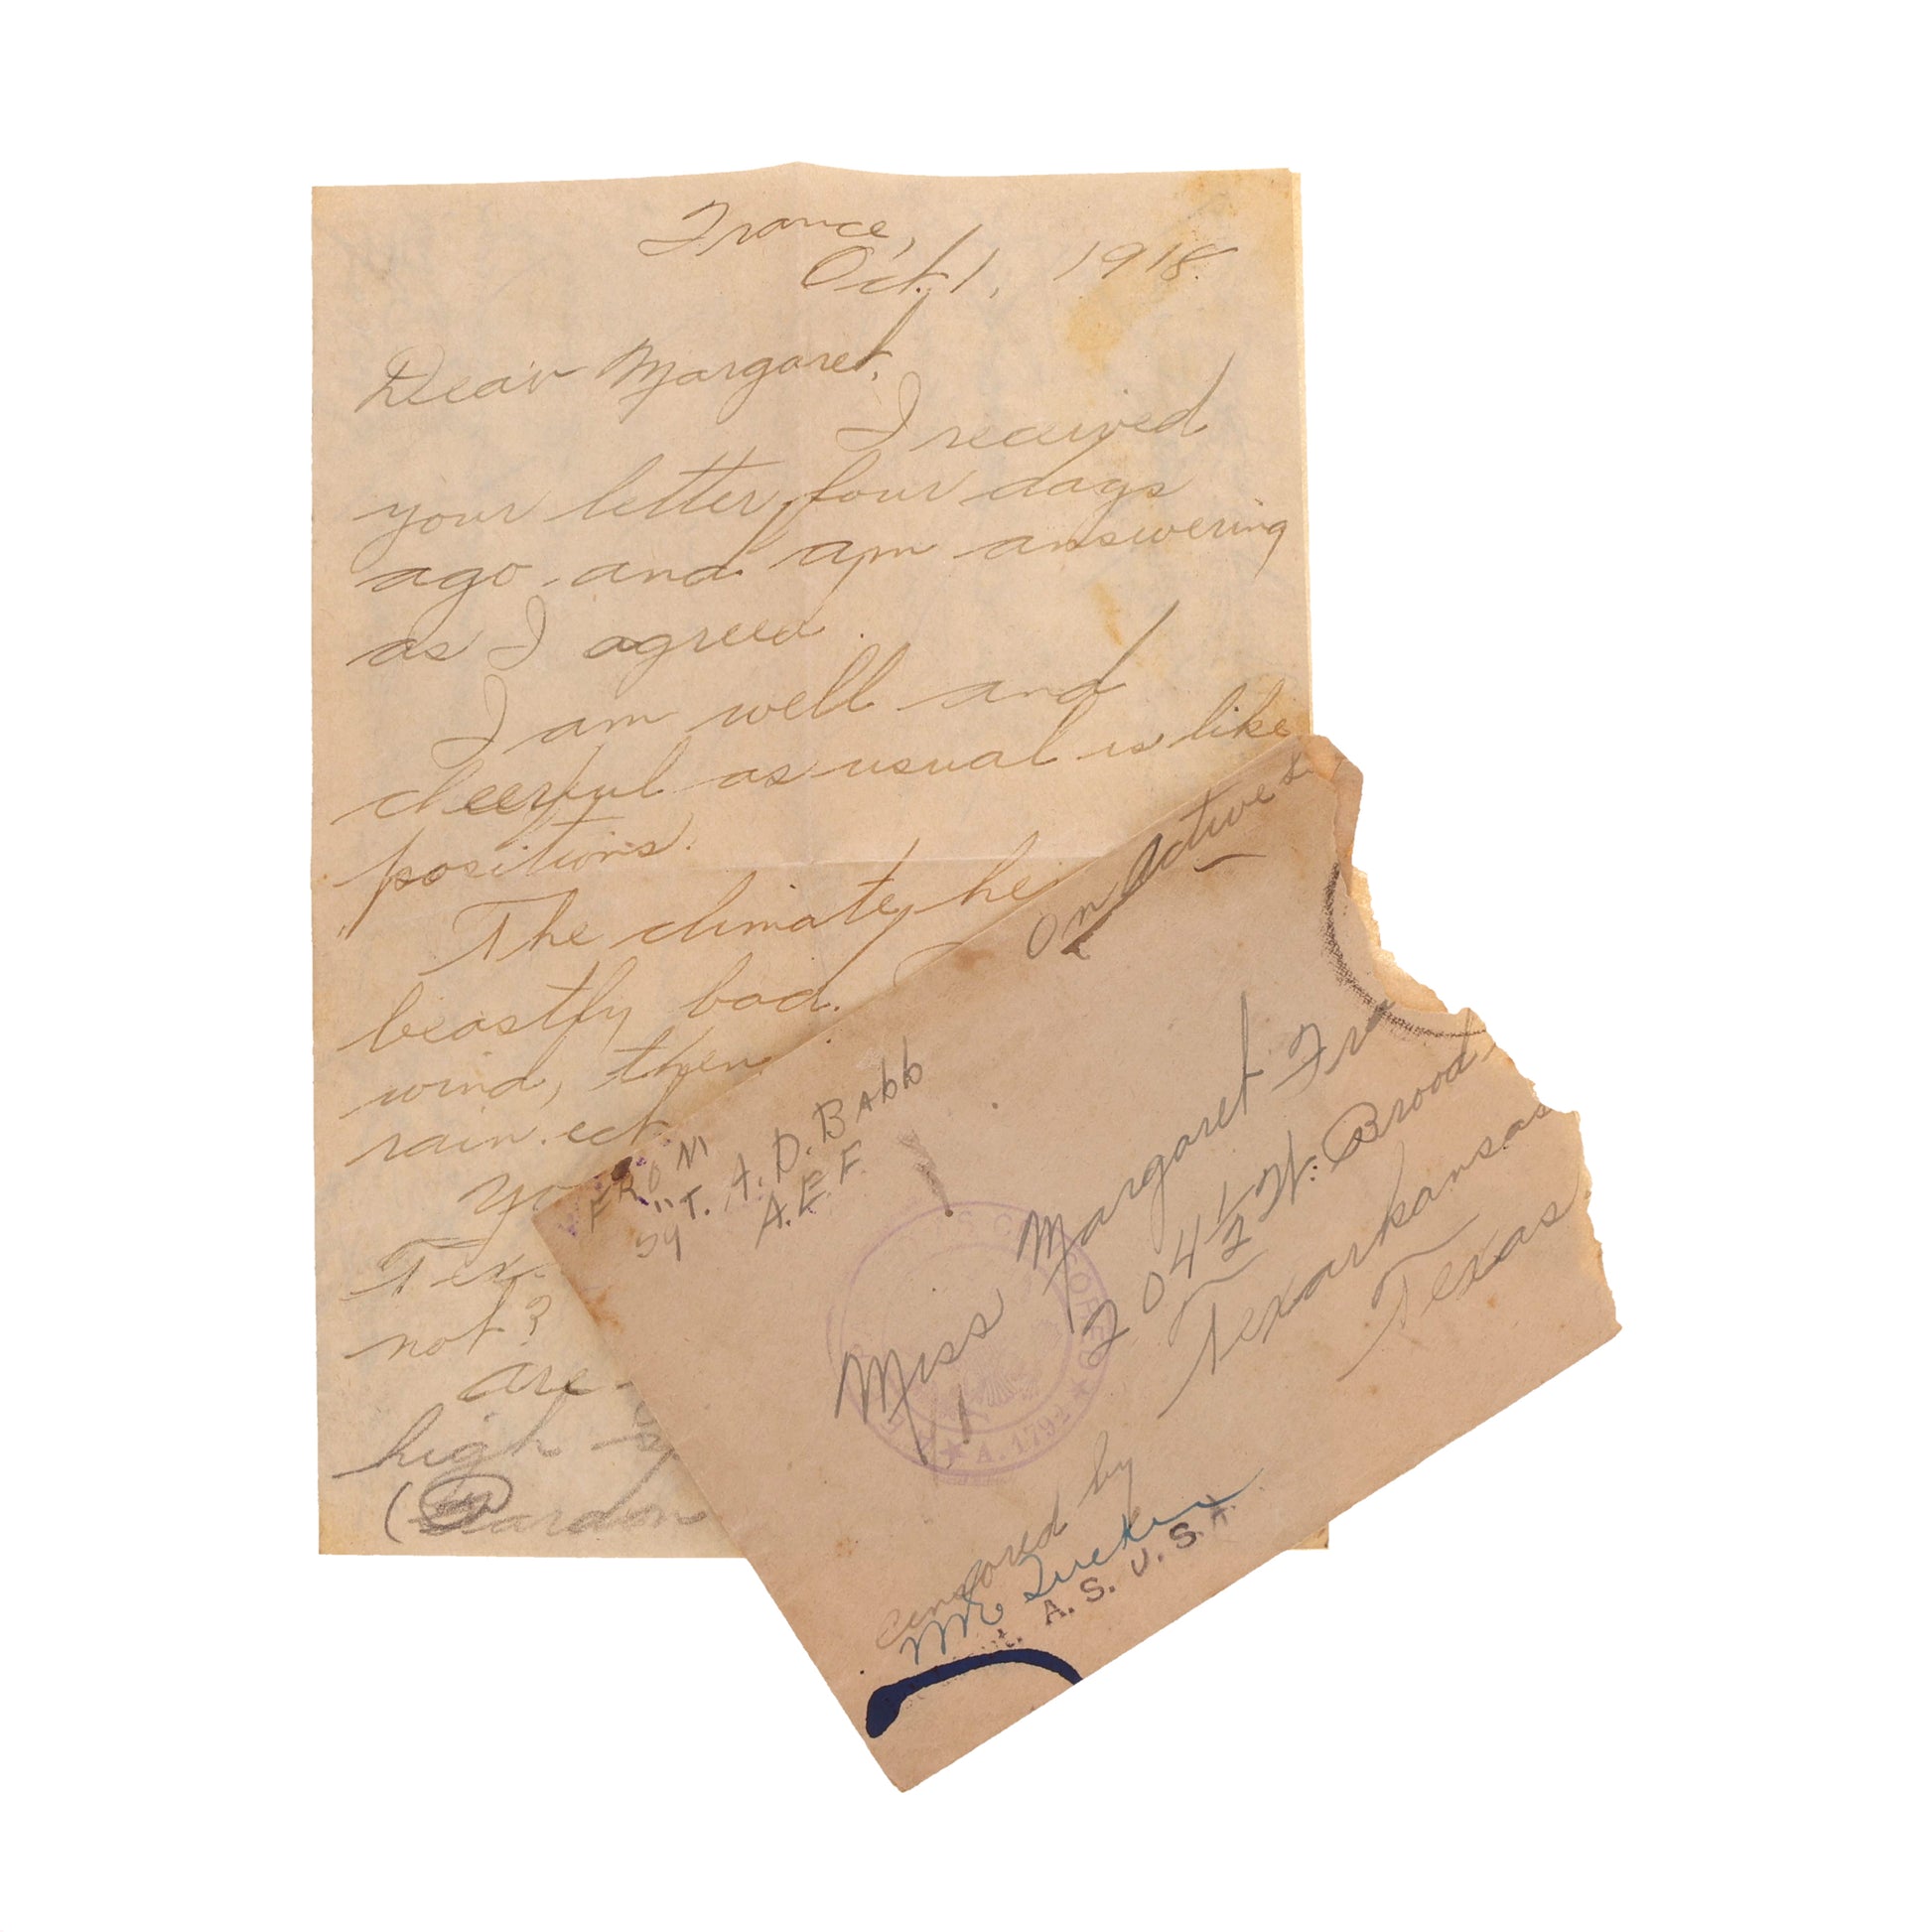 France,
Oct. 1, 1918.
Dear Margaret,
I received
your letter four days
ago and am answering
as I agreed.
I am well and
cheerful as usual is like
positions.
The climate he
beastly bad.
wind, then
rain. ect.
Yo
Tex.
not?
are
high
(Pardon
On Active S
FROM
SGT. A. D. BAbb
A.E.F.
Miss Margaret Fra
204 1/2 W. Broad
Texarkansas
Texas.
A. 1792
Censored by
A. S. U. S. A.